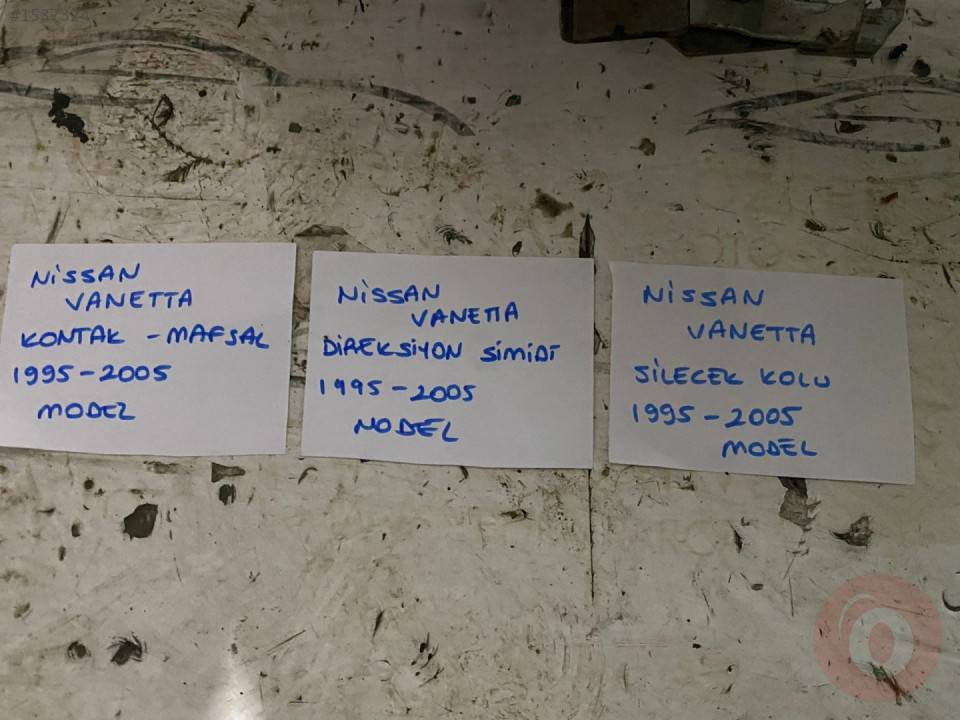 NiSSAN
VANETTA
KONTAK - MAFSAL
1995-2005
MODEL
NiSSAN
VANETTA
DiREKSiYON SiMiDi
1995-2005
MODEL
NiSSAN
VANETTA
SiLECEK KOLU
1995-2005
MODEL